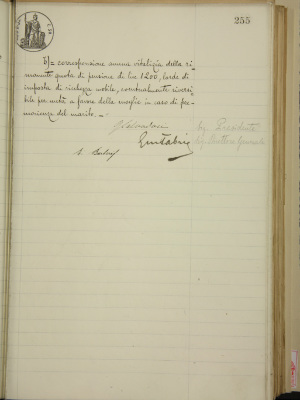 255
3/= corresponsione annua vitalizia della ri-
manente quota di pensione di lire 1200, lorde di
imposta di ricchezza mobile, eventualmente riversi-
bile per metà a favore della moglie in caso di pre-
morienza del marito. -
Presidente